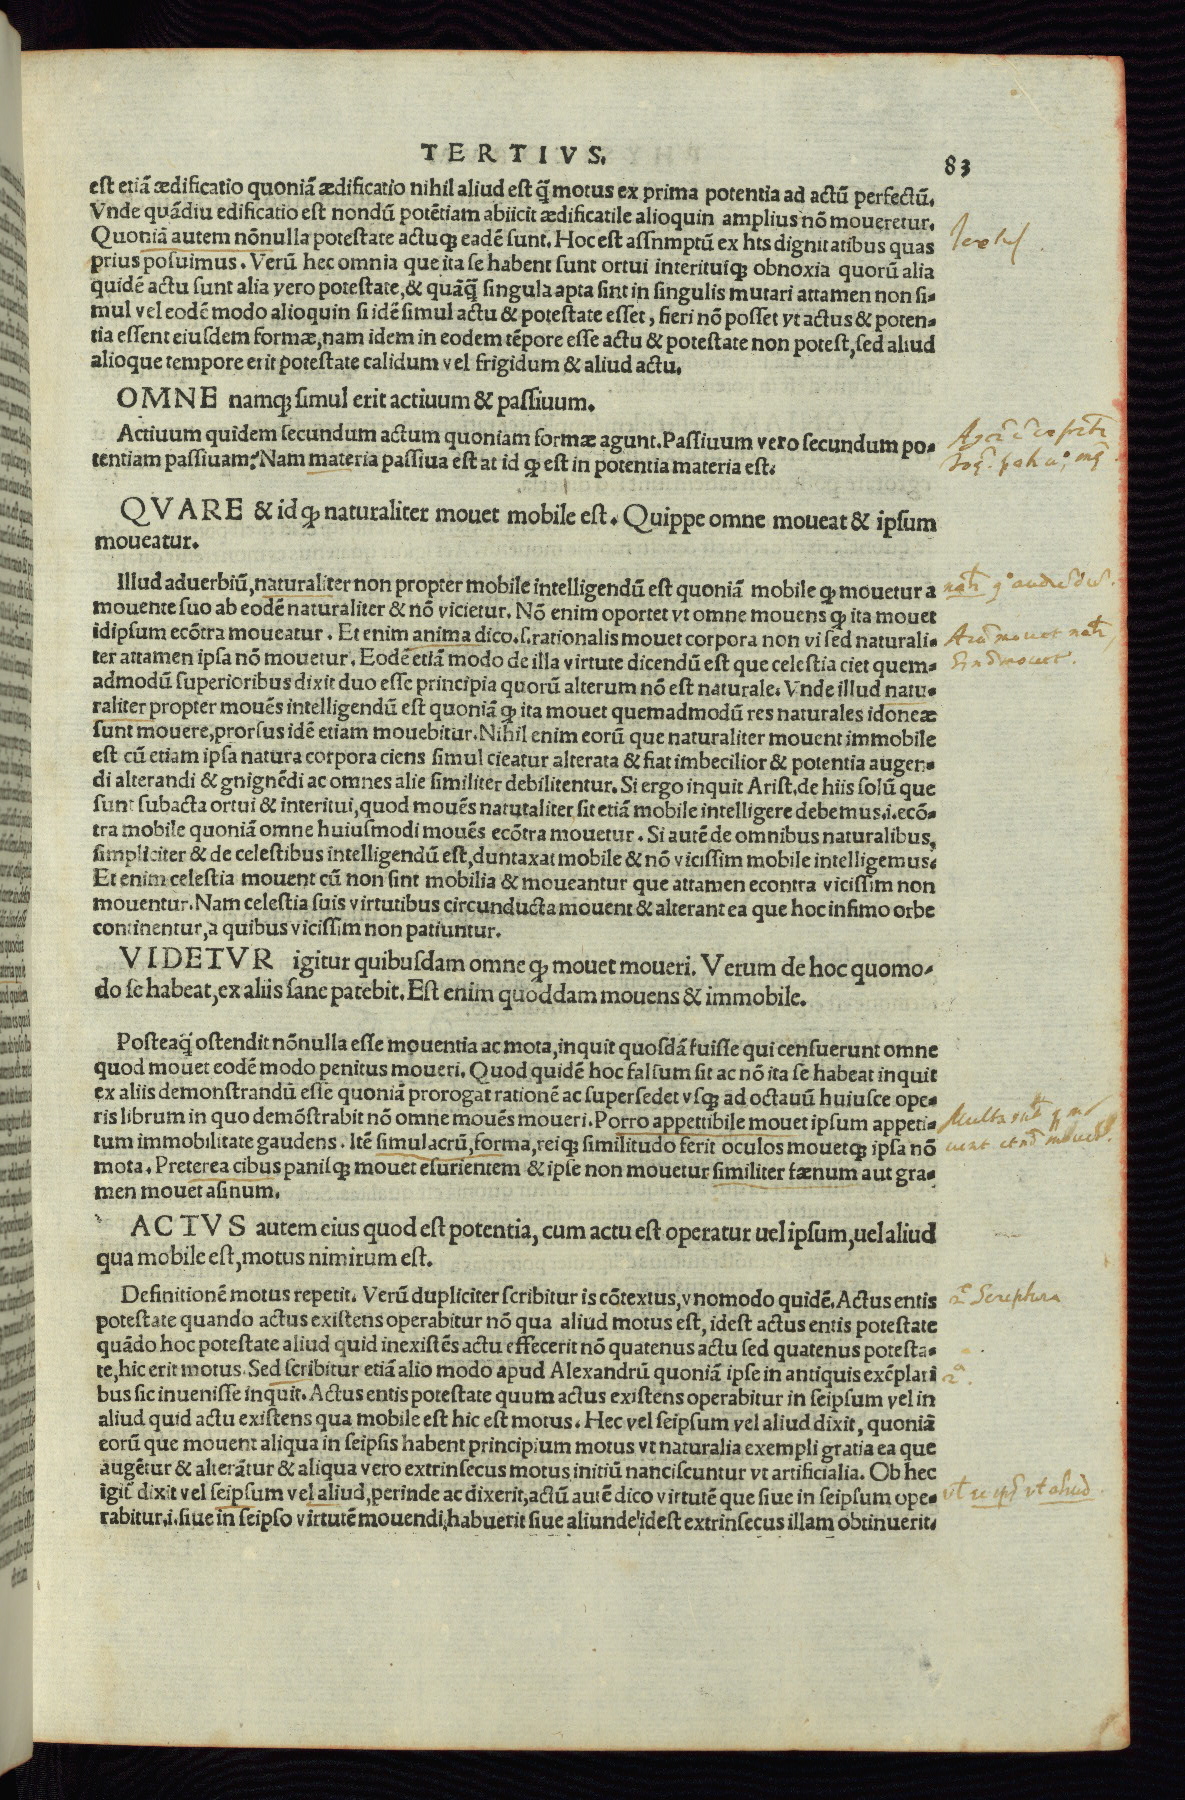 TERTIVS.
83
est etiã ædificatio quoniã ædificatio nihil aliud est q̃ motus ex prima potentia ad actũ perfectũ.
Vnde quãdiu edificatio est nondũ potẽtiam abiicit ædificatile alioquin amplius nõ moueretur.
Quoniã autem nõnulla potestate actuqꝫ eadẽ sunt. Hoc est assnmptũ ex hts dignitatibus quas
prius posuimus. Verũ hec omnia que ita se habent sunt ortui interituiqꝫ obnoxia quorũ alia
quidẽ actu sunt alia vero potestate, & quãq̃ singula apta sint in singulis mutari attamen non si-
mul vel eodẽ modo alioquin si idẽ simul actu & potestate esset, fieri nõ posset vt actus & poten-
tia essent eiusdem formæ, nam idem in eodem tẽpore esse actu & potestate non potest, sed aliud
alioque tempore erit potestate calidum vel frigidum & aliud actu.
OMNE namqꝫ simul erit actiuum & passiuum.
Actiuum quidem secundum actum quoniam formæ agunt. Passiuum vero secundum po-
tentiam passiuam: Nam materia passiua est at id qꝫ est in potentia materia est.
QVARE & id qꝫ naturaliter mouet mobile est. Quippe omne moueat & ipsum
moueatur.
Illud aduerbiũ, naturaliter non propter mobile intelligendũ est quoniã mobile qꝫ mouetur a
mouente suo ab eodẽ naturaliter & nõ vicietur. Nõ enim oportet vt omne mouens qꝫ ita mouet
idipsum ecõtra moueatur. Et enim anima dico.s.rationalis mouet corpora non vi sed naturali-
ter attamen ipsa nõ mouetur. Eodẽ etiã modo de illa virtute dicendũ est que celestia ciet quem-
admodũ superioribus dixit duo esse principia quorũ alterum nõ est naturale. Vnde illud natu-
raliter propter mouẽs intelligendũ est quoniã qꝫ ita mouet quemadmodũ res naturales idoneæ
sunt mouere, prorsus idẽ etiam mouebitur. Nihil enim eorũ que naturaliter mouent immobile
est cũ etiam ipsa natura corpora ciens simul cieatur alterata & fiat imbecilior & potentia augen-
di alterandi & gnignẽdi ac omnes alie similiter debilitentur. Si ergo inquit Arist. de hiis solũ que
sunt subacta ortui & interitui, quod mouẽs naturaliter sit etiã mobile intelligere debemus.i.ecõ-
tra mobile quoniã omne huiusmodi mouẽs ecõtra mouetur. Si autẽ de omnibus naturalibus,
simpliciter & de celestibus intelligendũ est, duntaxat mobile & nõ vicissim mobile intelligemus.
Et enim celestia mouent cũ non sint mobilia & moueantur que attamen econtra vicissim non
mouentur. Nam celestia suis virtutibus circunducta mouent & alterant ea que hoc infimo orbe
continentur, a quibus vicissim non patiuntur.
VIDETVR igitur quibusdam omne qꝫ mouet moueri. Verum de hoc quomo-
do se habeat, ex aliis sane patebit. Est enim quoddam mouens & immobile.
Posteaq̃ ostendit nõnulla esse mouentia ac mota, inquit quosdã fuisse qui censuerunt omne
quod mouet eodẽ modo penitus moueri. Quod quidẽ hoc falsum sit ac nõ ita se habeat inquit
ex aliis demonstrandũ esse quoniã prorogat rationẽ ac supersedet vsqꝫ ad octauũ huiusce ope-
ris librum in quo demõstrabit nõ omne mouẽs moueri. Porro appettibile mouet ipsum appeti-
tum immobilitate gaudens. Itẽ simulacrũ, forma, reiqꝫ similitudo ferit oculos mouetqꝫ ipsa nõ
mota. Preterea cibus panisqꝫ mouet esurientem & ipse non mouetur similiter fænum aut gra-
men mouet asinum.
ACTVS autem eius quod est potentia, cum actu est operatur uel ipsum, uel aliud
qua mobile est, motus nimirum est.
Definitionẽ motus repetit. Verũ dupliciter scribitur is cõtextus, vnomodo quidẽ. Actus entis
potestate quando actus existens operabitur nõ qua aliud motus est, idest actus entis potestate
quãdo hoc potestate aliud quid inexistẽs actu effecerit nõ quatenus actu sed quatenus potesta-
te, hic erit motus. Sed scribitur etiã alio modo apud Alexandrũ quoniã ipse in antiquis exẽplari
bus sic inuenisse inquit. Actus entis potestate quum actus existens operabitur in seipsum vel in
aliud quid actu existens qua mobile est hic est motus. Hec vel seipsum vel aliud dixit, quoniã
eorũ que mouent aliqua in seipsis habent principium motus vt naturalia exempli gratia ea que
augẽtur & alterãtur & aliqua vero extrinsecus motus initiũ nanciscuntur vt artificialia. Ob hec
igit̃ dixit vel seipsum vel aliud, perinde ac dixerit, actũ autẽ dico virtutẽ que siue in seipsum ope-
rabitur.i.siue in seipso virtutẽ mouendi habuerit siue aliunde idest extrinsecus illam obtinuerit.
Scriptura